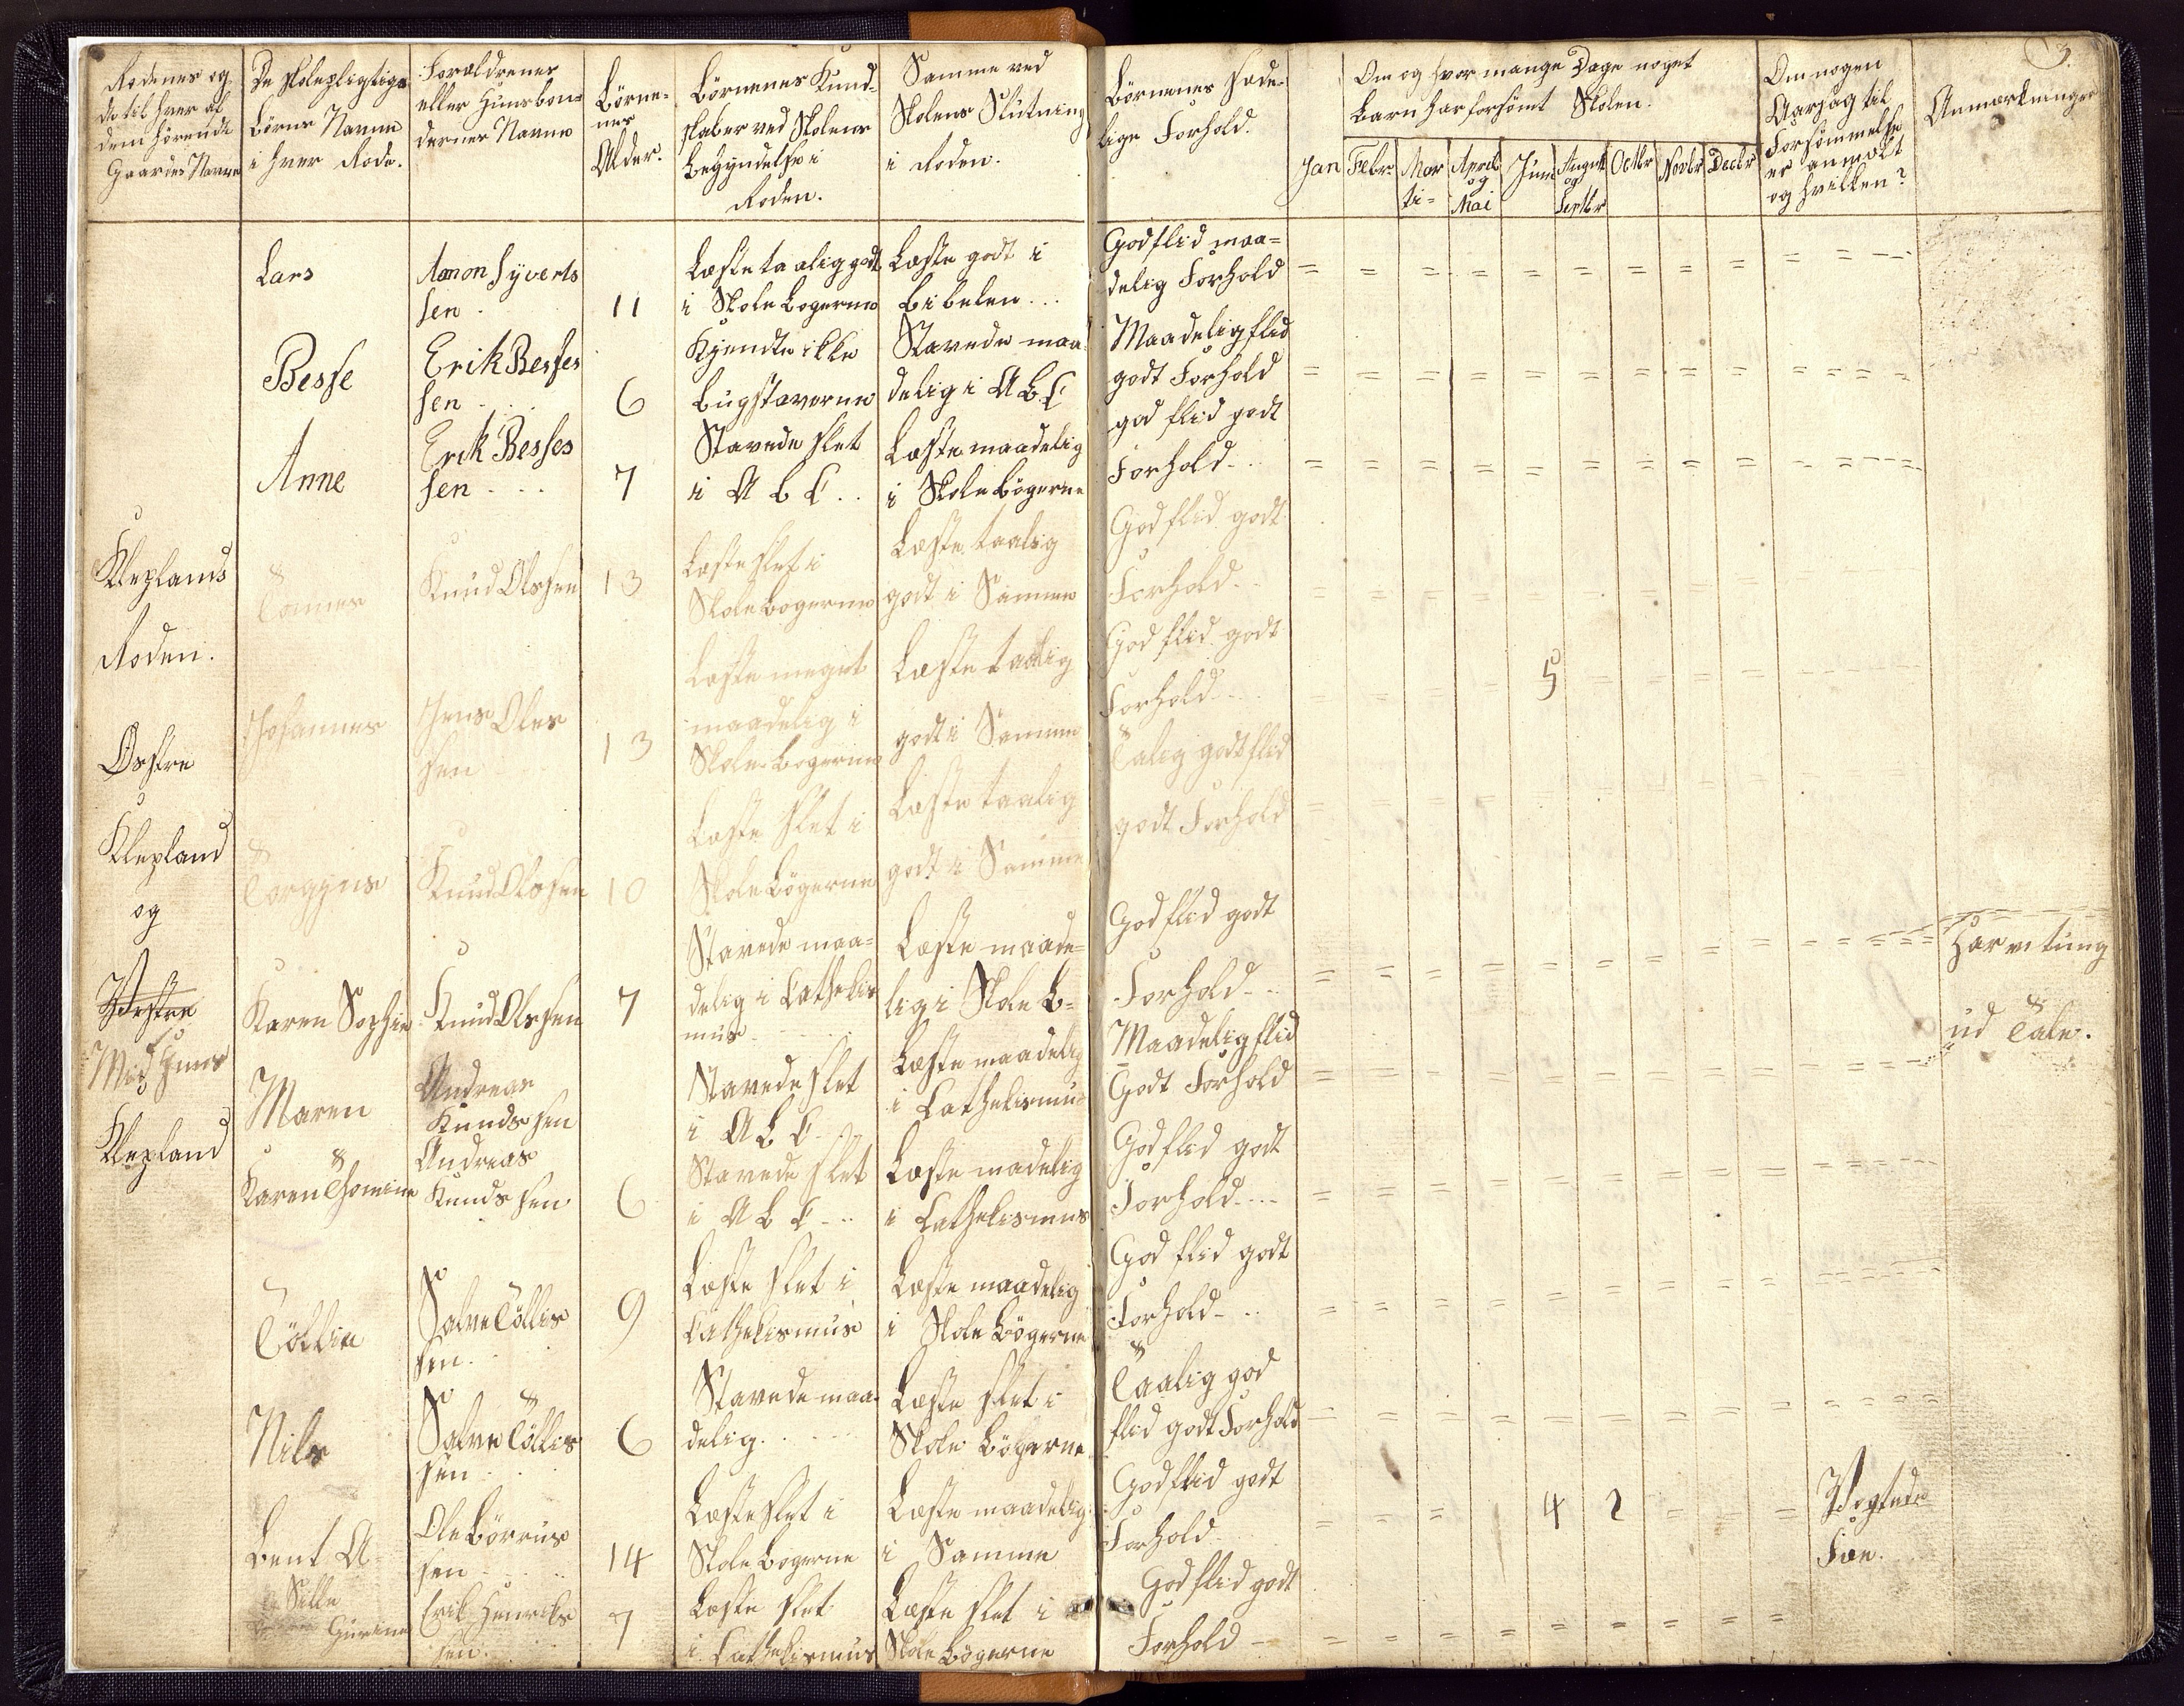 Rodenes og
de til hver af
dem hörende
Gaardes Navne
De skolepligtige
Börns Navne
i hver Rode.
Forældrenes
eller Huusbon-
dernes Navne
Börne-
nes
Alder.
Börnenes Kund-
skaber ved Skolens
Begyndelse i
Roden.
Samme ved
Skolens Slutning
i Roden.
Börnenes Sæde-
lige Forhold.
Om og hvor mange Dage noget
Barn har forsömt Skolen.
Jan
Febr
Mar
ti-
April
og
Mai
Juni
August
og
Septbr
Octbr
Novbr
Decbr
Om nogen
Aarsag til
Forsömmelse
er anmeldt
og hvilken?
Anmærkninger
3.
Lars
Aanon Syverts
sen
11
Læste taalig godt
i Skolebogerne
Læste godt i
Bibelen
God flid maa=
delig Forhold
Besse
Erik Besses
sen
6
Kjendte ikke
Bugstaverne
Stavede maa
delig i A B C
Maadelig flid
godt Forhold
Anne
Erik Besses
sen
7
Stavede slet
i A B C
Læste maadelig
i Skolebögerne
god flid godt
Forhold
Kleplands
Roden.
Tomes
Knud Olssen
13
Læste slet i
Skolebogerne
Læste taalig
godt i Samme
God flid godt
Forhold.
Østre
Klepland
og
Johannes
Jens Oles
sen
13
Læste meget
maadelig i
Skolebogerne
Læste taalig
godt i Samme
God flid godt
Forhold
5
Torgjus
Knud Olssen
10
Læste slet i
Skolebögerne
Læste taalig
godt i Samme
Talig godt flid
godt Forhold
Vestre
Midhuus
Klepland
Karen Sophie
Knud Olssen
7
Stavede maa=
delig i Cathekis
mus
Læste maade=
lig i Skole B=
God flid godt
Forhold
Har en tung
ud Tale.
Maren
Andreas
Knudssen
Stavede slet
i A B C
Læste maadelig
i Cathekismus
Maadelig flid
Godt Forhold
Karen Thomine
Andreas
Knudssen
6
Stavede slet
i A B C
Læste madelig
i Cathekismus
God flid godt
Forhold
Töllin
Salve Töllis
sen
9
Læste slet i
Cathekismus
Læste maadelig
i Skolebögerne
God flid godt
Forhold
Nils
Salve Töllis
sen
6
Stavede maa-
delig
Læste slet i
Skole Bögerne
Taalig god
flid godt Forhold
Bent A
Ole Börrus
sen
14
Læste slet i
Skole bogerne
Læste maadelig
i Samme
God flid godt
Forhold
4
2
Vogtede
Fæe.
Sille
Gurine
Erik Henriks
sen
7
Læste slet
i Cathekismus
Læste slet i
Skole bögerne
God flid godt
Forhold